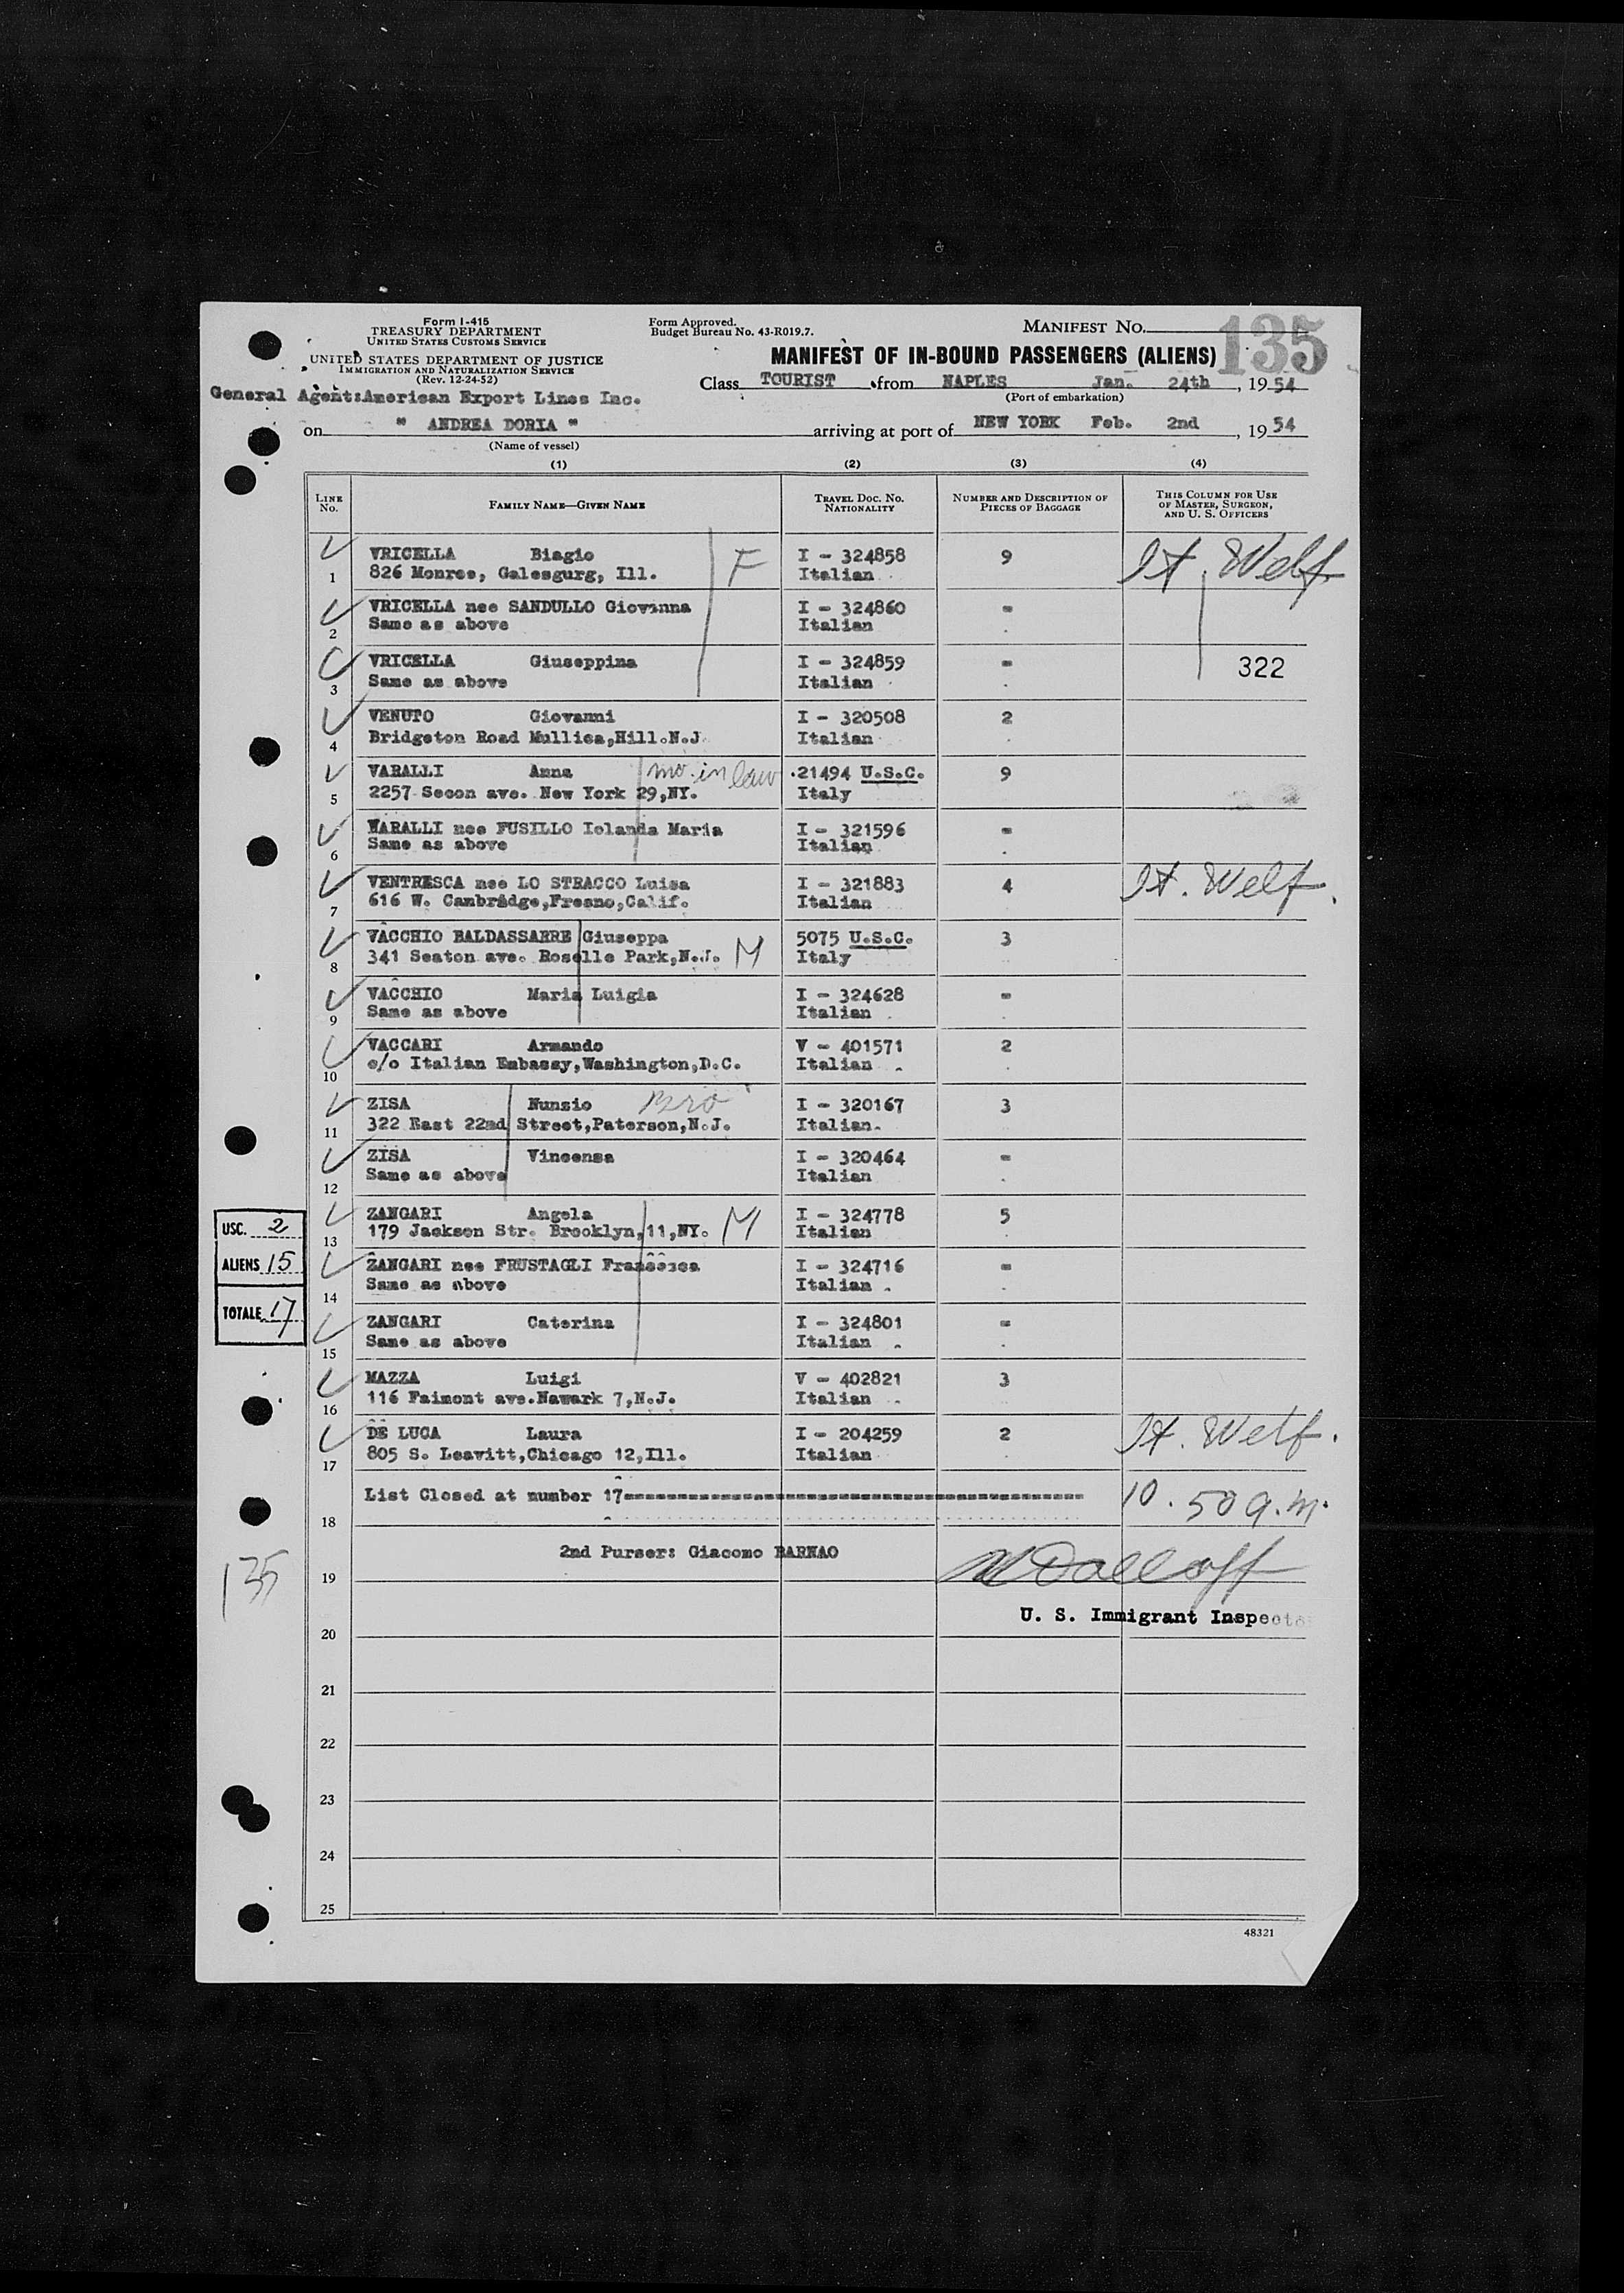 Form I-415
TREASURY DEPARTMENT
UNITED STATES CUSTOMS SERVICE
UNITED STATES DEPARTMENT OF JUSTICE
IMMIGRATION AND NATURALIZATION SERVICE
(Rev. 12-24-52)
Form Approved.
Budget Bureau No. 43-R019.7.
MANIFEST NO. 135
MANIFEST OF IN-BOUND PASSENGERS (ALIENS)
Class TOURIST from NAPLES Jan. 24th, 1954
(Port of embarkation)
General Agent:American Export Lines Inc.
on " ANDREA DORIA " arriving at port of NEW YORK Feb. 2nd, 1954
(Name of vessel)
(1) (2) (3) (4)
LINE NO. FAMILY NAME—GIVEN NAME TRAVEL DOC. NO. NATIONALITY NUMBER AND DESCRIPTION OF PIECES OF BAGGAGE THIS COLUMN FOR USE OF MASTER, SURGEON, AND U. S. OFFICERS
VRICELLA Biagio F I - 324858 9 It. Welf.
1 826 Monroe, Galesgurg, Ill. Italian
VRICELLA nee SANDULLO Giovanna I - 324860 =
2 Same as above Italian
VRICELLA Giuseppina I - 324859 = 322
3 Same as above Italian
VENUTO Giovanni I - 320508 2
4 Bridgeton Road Mullica,Hill.N.J. Italian
VARALLI Anna mo. in law 21494 U.S.C. 9
5 2257 Secon ave. New York 29,NY. Italy
VARALLI nee FUSILLO Iolanda Maria I - 321596 =
6 Same as above Italian
VENTRESCA nee LO STRACCO Luisa I - 321883 4 It. Welf.
7 616 W. Cambridge,Fresno,Calif. Italian
VACCHIO BALDASSARRE Giuseppa 5075 U.S.C. 3
8 341 Seaton ave. Roselle Park,N.J. M Italy
VACCHIO Maria Luigia I - 324628 =
9 Same as above Italian
VACCARI Armando V - 401571 2
10 c/o Italian Embassy,Washington,D.C. Italian
ZISA Nunzio Bro I - 320167 3
11 322 East 22nd Street,Paterson,N.J. Italian
ZISA Vincenza I - 320464 =
12 Same as above Italian
ZANGARI Angela M I - 324778 5
13 179 Jackson Str. Brooklyn,11,NY. Italian
ZANGARI nee FRUSTAGLI Francesca I - 324716 =
14 Same as above Italian
ZANGARI Caterina I - 324801 =
15 Same as above Italian
MAZZA Luigi V - 402821 3
16 116 Faimont ave.Newark 7,N.J. Italian
DE LUCA Laura I - 204259 2 It. Welf.
17 805 S. Leavitt,Chicago 12,Ill. Italian
USC. 2
ALIENS 15
TOTALE 17
List Closed at number 17 10.50 a.m.
18
2nd Purser: Giacomo BARNAO
19
135
U. S. Immigrant Inspector
20
21
22
23
24
25
48321